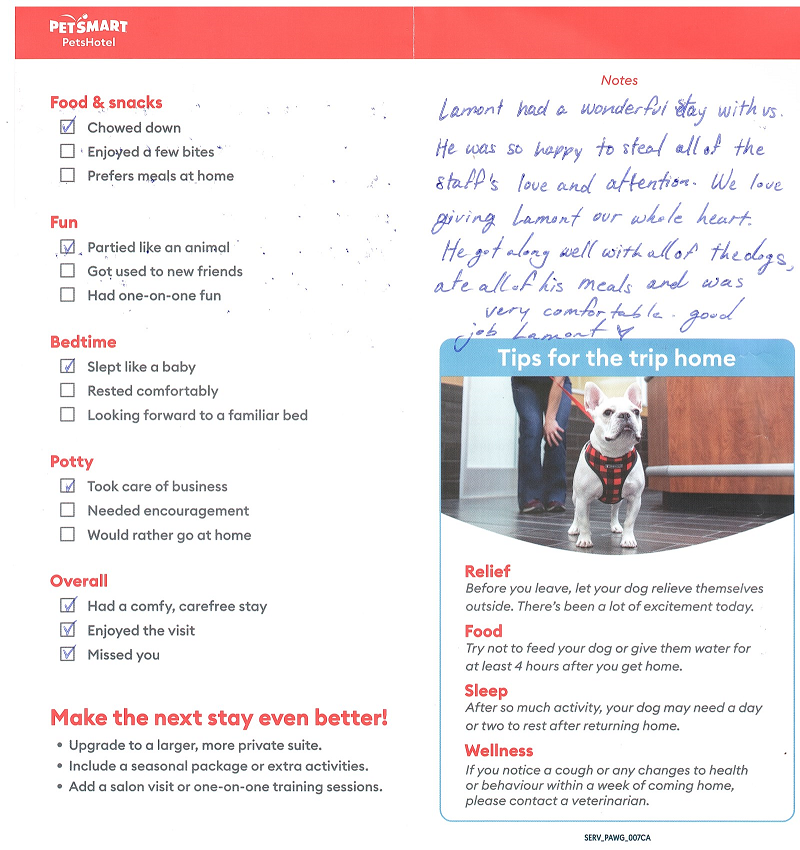 PETSMART
PetsHotel
Food & snacks
Chowed down
Enjoyed a few bites
Prefers meals at home
Fun
Partied like an animal
Got used to new friends
Had one-on-one fun
Bedtime
Slept like a baby
Rested comfortably
Looking forward to a familiar bed
Potty
Took care of business
Needed encouragement
Would rather go at home
Overall
Had a comfy, carefree stay
Enjoyed the visit
Missed you
Make the next stay even better!
• Upgrade to a larger, more private suite.
• Include a seasonal package or extra activities.
• Add a salon visit or one-on-one training sessions.
Notes
Lamont had a wonderful stay with us.
He was so happy to steal all of the
staff's love and attention. We love
giving Lamont our whole heart.
He got along well with all of the dogs,
ate all of his meals and was
very comfortable. good
job Lamont ♡
Tips for the trip home
Relief
Before you leave, let your dog relieve themselves
outside. There's been a lot of excitement today.
Food
Try not to feed your dog or give them water for
at least 4 hours after you get home.
Sleep
After so much activity, your dog may need a day
or two to rest after returning home.
Wellness
If you notice a cough or any changes to health
or behaviour within a week of coming home,
please contact a veterinarian.
SERV_PAWG_007CA